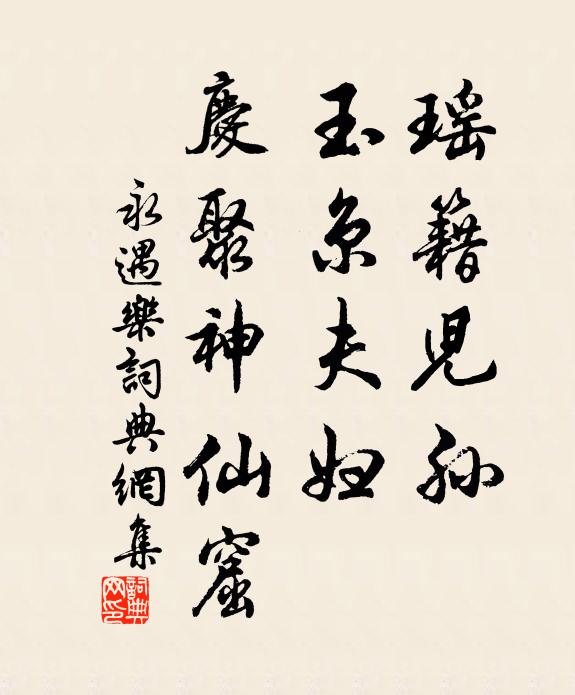 瑶籍児孙
玉京夫妇
慶聚神仙窟
永遇樂詞典網集
詞典网印